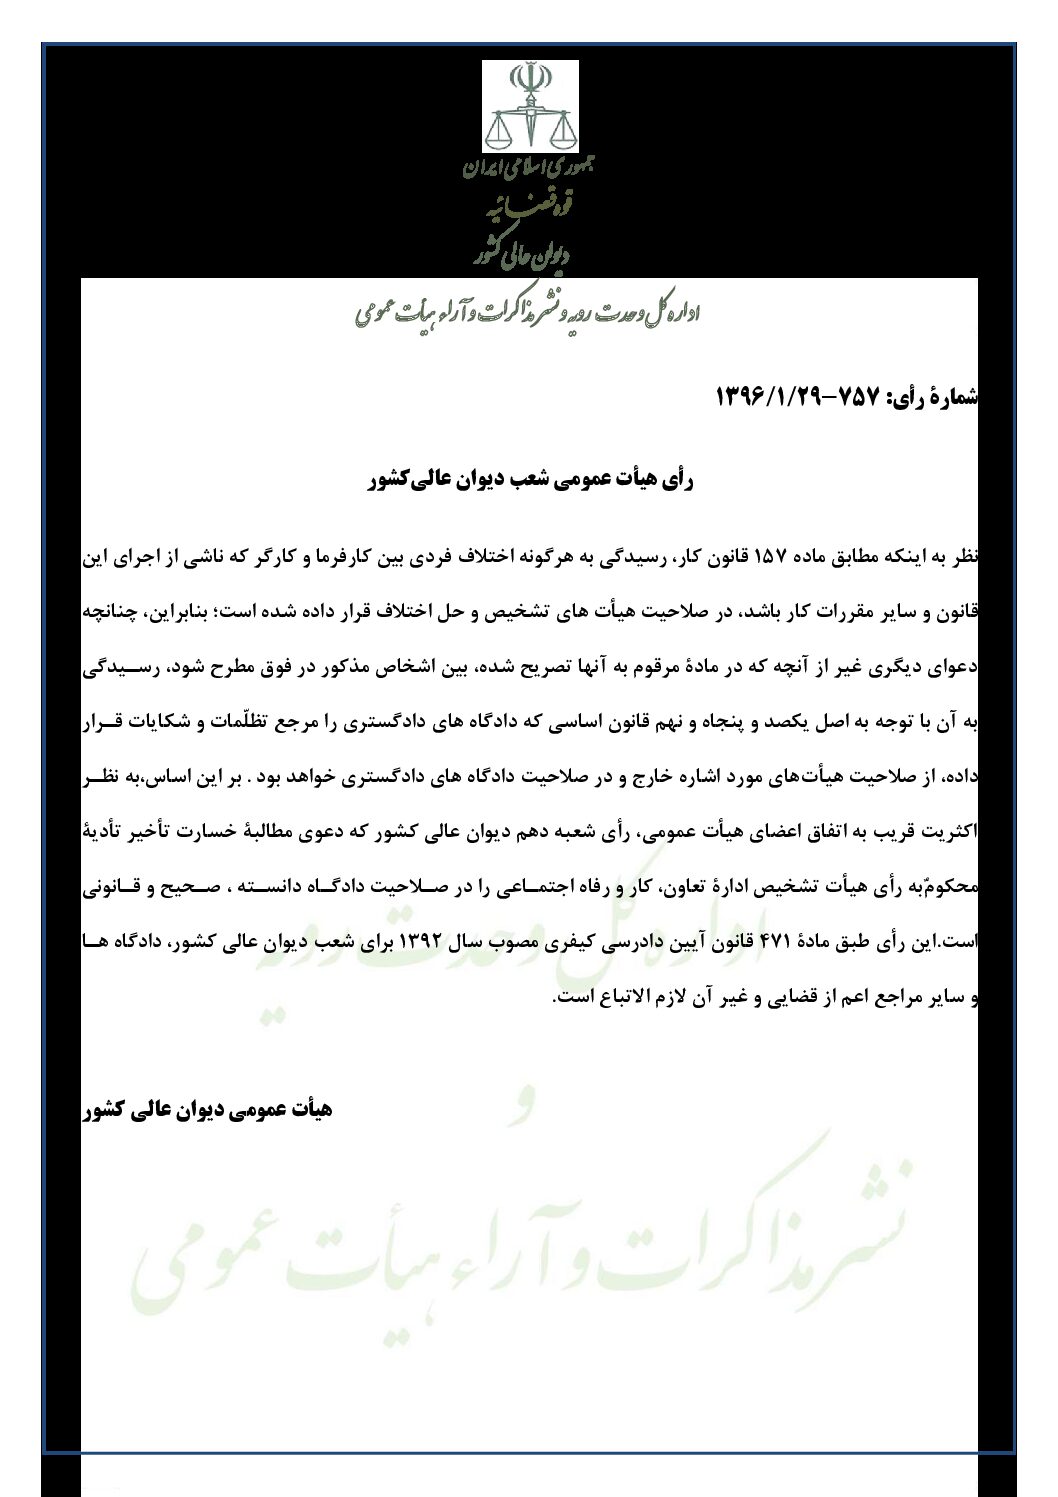 جمهوری اسلامی ایران
قوه قضائیه
دیوان عالی کشور
اداره کل وحدت رویه و نشر مذاکرات و آراء هیأت عمومی
شمارهٔ رأی: ۷۵۷-۱۳۹۶/۱/۲۹
رأی هیأت عمومی شعب دیوان عالی‌کشور
نظر به اینکه مطابق ماده ۱۵۷ قانون کار، رسیدگی به هرگونه اختلاف فردی بین کارفرما و کارگر که ناشی از اجرای این
قانون و سایر مقررات کار باشد، در صلاحیت هیأت های تشخیص و حل اختلاف قرار داده شده است؛ بنابراین، چنانچه
دعوای دیگری غیر از آنچه که در مادهٔ مرقوم به آنها تصریح شده، بین اشخاص مذکور در فوق مطرح شود، رسـیدگی
به آن با توجه به اصل یکصد و پنجاه و نهم قانون اساسی که دادگاه های دادگستری را مرجع تظلّمات و شکایات قـرار
داده، از صلاحیت هیأت‌های مورد اشاره خارج و در صلاحیت دادگاه های دادگستری خواهد بود . بر این اساس،به نظـر
اکثریت قریب به اتفاق اعضای هیأت عمومی، رأی شعبه دهم دیوان عالی کشور که دعوی مطالبهٔ خسارت تأخیر تأدیهٔ
محکومٌ‌به رأی هیأت تشخیص ادارهٔ تعاون، کار و رفاه اجتمـاعی را در صـلاحیت دادگـاه دانسـته ، صـحیح و قـانونی
است.این رأی طبق مادهٔ ۴۷۱ قانون آیین دادرسی کیفری مصوب سال ۱۳۹۲ برای شعب دیوان عالی کشور، دادگاه هـا
و سایر مراجع اعم از قضایی و غیر آن لازم الاتباع است.
هیأت عمومی دیوان عالی کشور
اداره کل وحدت رویه
و
نشر مذاکرات و آراء هیأت عمومی